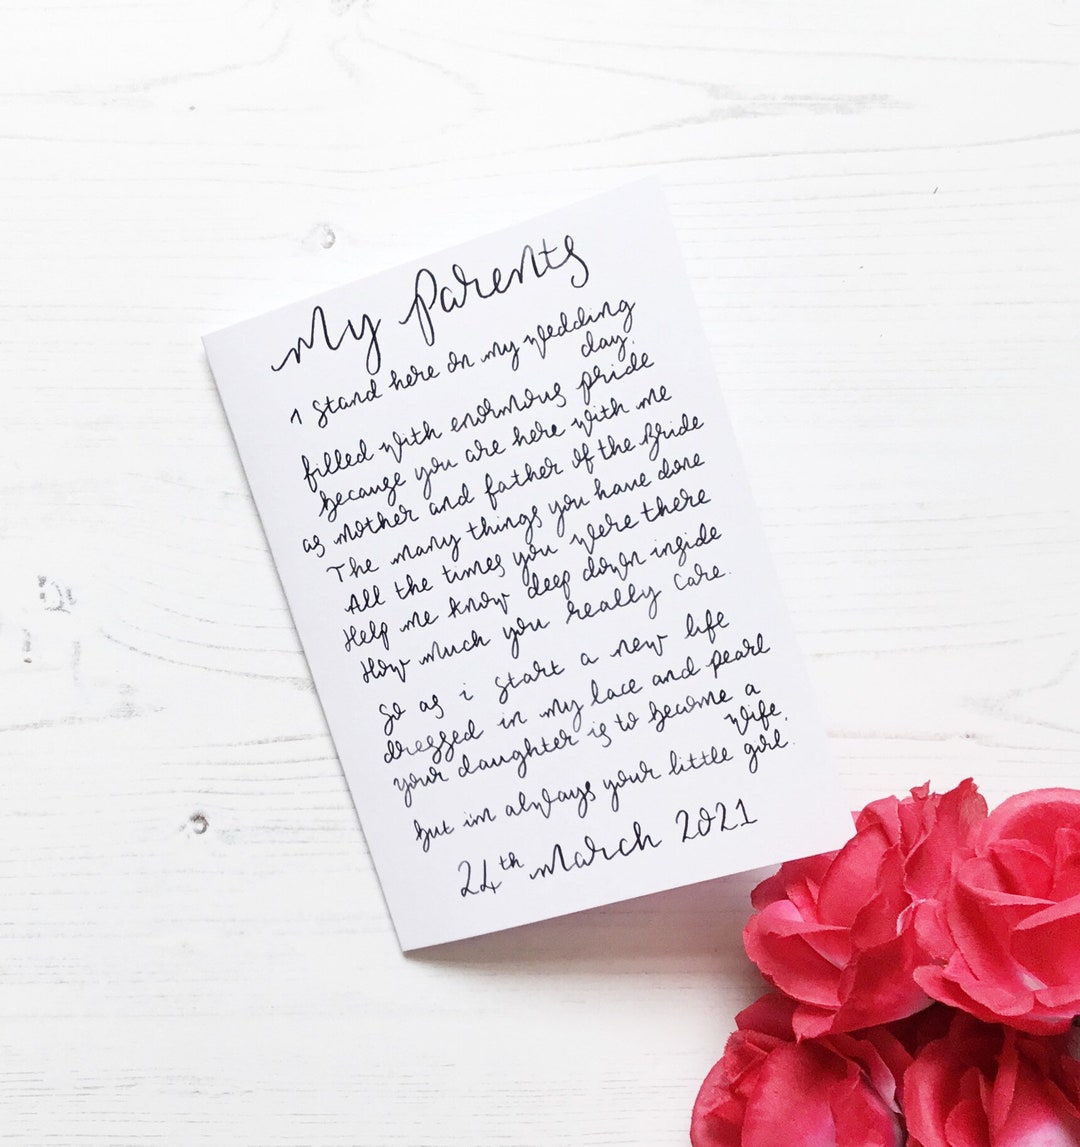 My Parents
I Stand here on my wedding
day.
filled with enormous pride
because you are here with me
as mother and father of the Bride
The many things you have done
All the times you were there
Help me know deep down inside
How much you really care.
So as i start a new life
dressed in my lace and pearl
your daughter is to become a
wife.
but im always your little girl.
24th March 2021